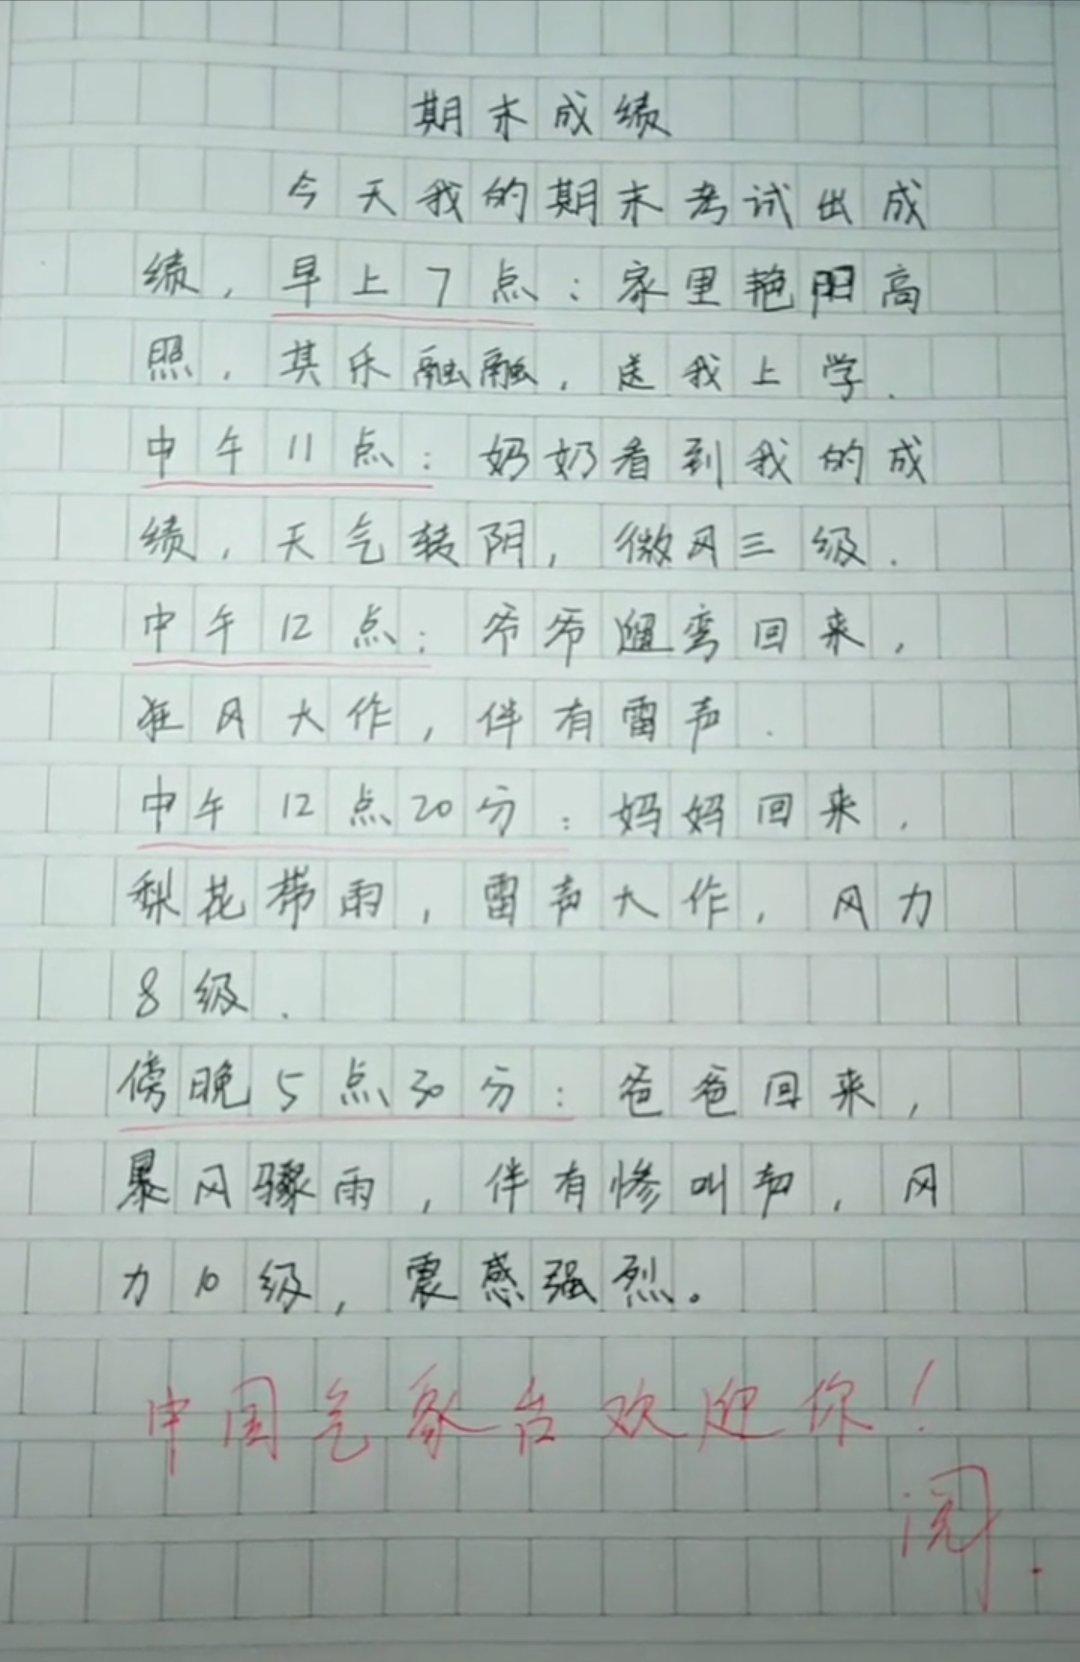 期末成绩
今天我的期末考试出成
绩，早上7点：家里艳阳高
照，其乐融融，送我上学.
中午11点：奶奶看到我的成
绩，天气转阴，微风三级.
中午12点：爷爷遛弯回来，
狂风大作，伴有雷声.
中午12点20分：妈妈回来，
梨花带雨，雷声大作，风力
8级.
傍晚5点30分：爸爸回来，
暴风骤雨，伴有惨叫声，风
力10级，震感强烈。
中国气象台欢迎你！
阅.